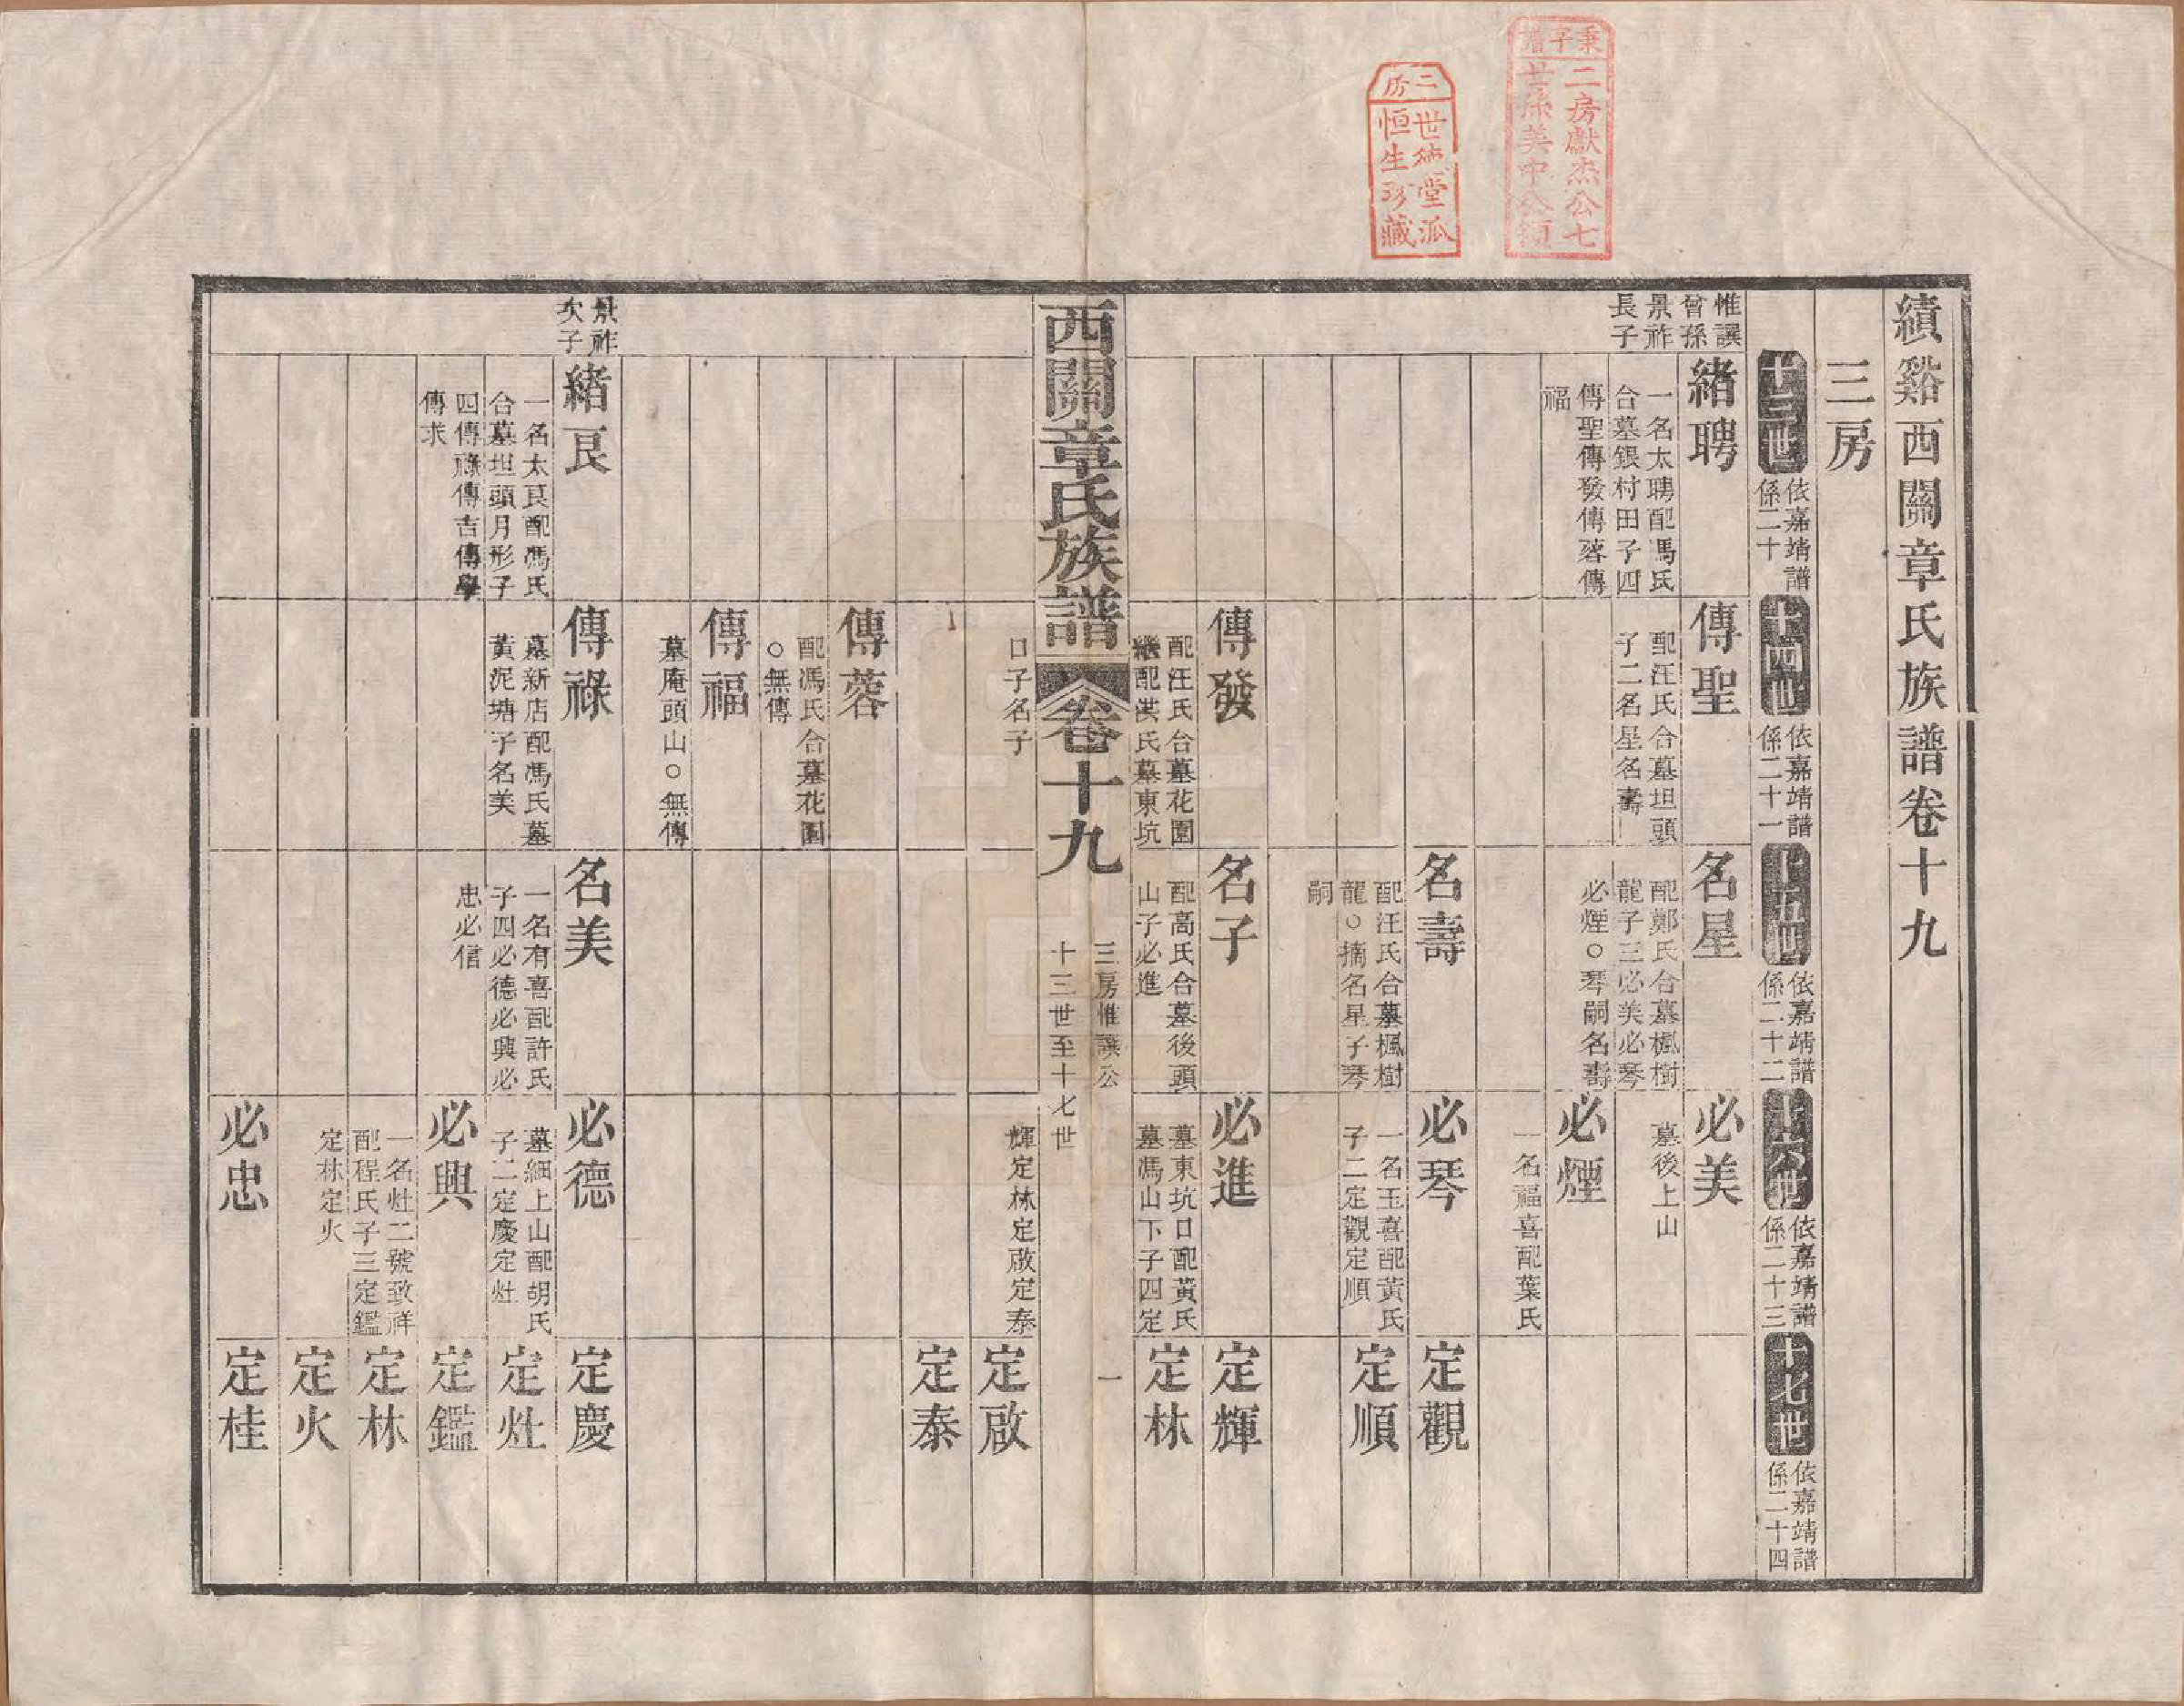 績谿西關章氏族譜卷十九
三房
十三世
依嘉靖譜
係二十
十四世
依嘉靖譜
係二十一
十五世
依嘉靖譜
係二十二
十六世
依嘉靖譜
係二十三
十七世
依嘉靖譜
係二十四
惟譔
曾孫
景祚
長子
緒聘
一名太聘配馮氏
合墓銀村田子四
傳聖傳發傳蓉傳
福
傳聖
配汪氏合墓坦頭
子二名星名壽
名星
配鄭氏合墓楓樹
龍子三必美必琴
必煙○琴嗣名壽
必美
墓後上山
必煙
一名福喜配葉氏
名壽
配汪氏合墓楓樹
龍○摘名星子琴
嗣
必琴
一名玉喜配黃氏
子二定觀定順
定觀
定順
傳發
配汪氏合墓花園
繼配洪氏墓東坑
口子名子
名子
配高氏合墓後頭
山子必進
必進
墓東坑口配黃氏
墓馮山下子四定
輝定林定啟定泰
定輝
定林
西關章氏族譜
卷十九
三房惟譔公
十三世至十七世
一
定啟
定泰
傳蓉
配馮氏合墓花園
○無傳
傳福
墓庵頭山○無傳
景祚
次子
緒良
一名太良配馮氏
合墓坦頭月形子
四傳祿傳吉傳學
傳求
傳祿
墓新店配馮氏墓
黃泥塘子名美
名美
一名有喜配許氏
子四必德必興必
忠必信
必德
墓細上山配胡氏
子二定慶定灶
定慶
定灶
必興
一名灶二號致祥
配程氏子三定鑑
定林定火
定鑑
定林
定火
必忠
定桂
二房
世德堂派
恒生珍藏
二房獻杰公七
世孫美中公領